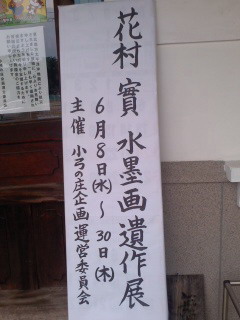 花村 實 水墨画遺作展
6月8日(水)～30日(木)
主催 小弓の庄企画運営委員会